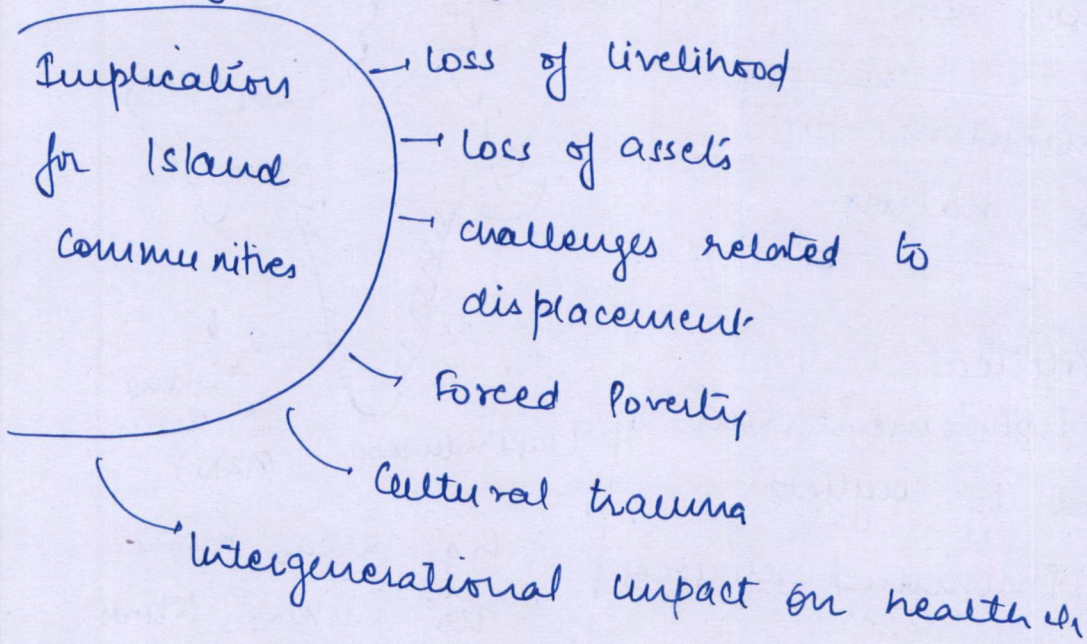 Implication
for Island
communities
→ loss of livelihood
→ loss of assets
→ challenges related to
displacement
→ Forced Poverty
→ Cultural trauma
→ Intergenerational impact on health